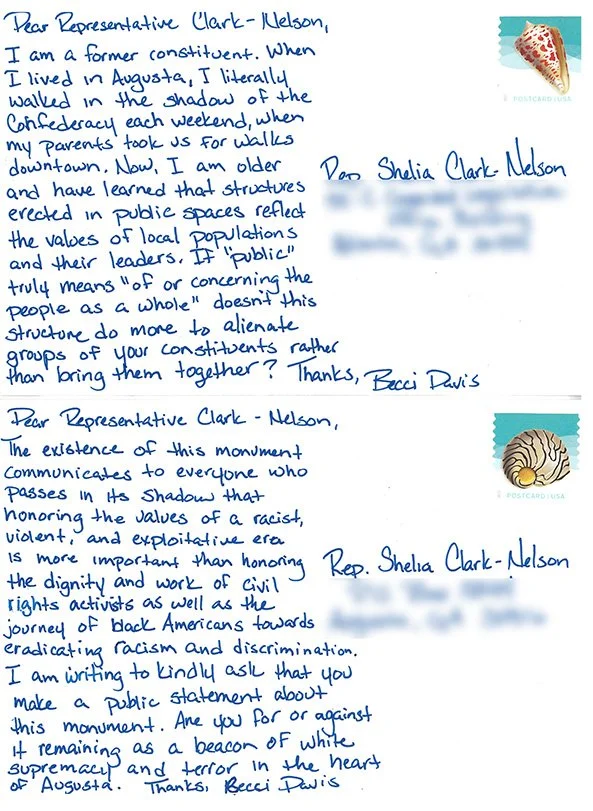 Dear Representative Clark-Nelson,
I am a former constituent. When
I lived in Augusta, I literally
walked in the shadow of the
Confederacy each weekend, when
my parents took us for walks
downtown. Now, I am older
and have learned that structures
erected in public spaces reflect
the values of local populations
and their leaders. If "public"
truly means "of or concerning the
people as a whole" doesn't this
structure do more to alienate
groups of your constituents rather
than bring them together? Thanks, Becci Davis
POSTCARD / USA
Rep. Shelia Clark-Nelson
Dear Representative Clark-Nelson,
The existence of this monument
communicates to everyone who
passes in its shadow that
honoring the values of a racist,
violent, and exploitative era
is more important than honoring
the dignity and work of civil
rights activists as well as the
journey of black Americans towards
eradicating racism and discrimination.
I am writing to kindly ask that you
make a public statement about
this monument. Are you for or against
it remaining as a beacon of white
supremacy and terror in the heart
of Augusta. Thanks, Becci Davis
POSTCARD / USA
Rep. Shelia Clark-Nelson